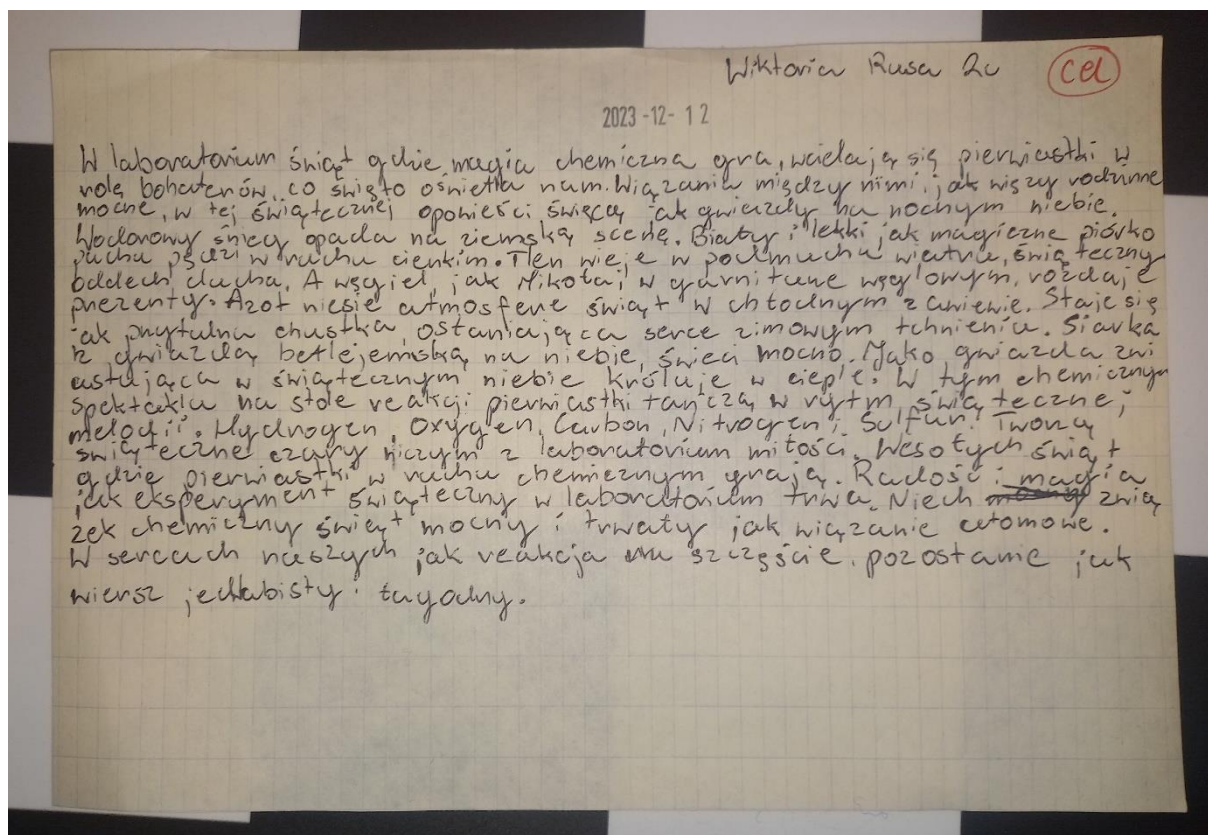 Wiktoria Rusa 2c cel
2023-12-12
W laboratorium świąt gdzie magia chemiczna gra, wcielają się pierwiastki w
rolę bohaterów, co święto oświetla nam. Wiązania między nimi, jak więzy rodzinne
mocne, w tej świątecznej opowieści święcą jak gwiazdy na nochym niebie.
Wodorowy śnieg opada na ziemską scenę. Biały i lekki jak magiczne piórko
puchu pędzi w ruchu cienkim. Tlen wieje w podmuchu wiatru, świąteczny
oddech ducha. A węgiel, jak Mikołaj w garniturze węglowym, rozdaje
prezenty. Azot niesie atmosferę świąt w chłodnym zawiewie. Staje się
jak przytulna chustka, osłaniająca serce zimowym tchnieniu. Siarka
z gwiazdą betlejemską na niebie, świeci mocno. Jako gwiazda zwi
astująca w świątecznym niebie króluje w cieple. W tym chemicznym
spektaklu na stole reakcji pierwiastki tańczą w rytm świątecznej
melodii. Hydrogen, Oxygen, Carbon, Nitrogen i Sulfur. Tworzą
świąteczne czary niczym z laboratorium miłości. Wesołych świąt
gdzie pierwiastki w ruchu chemicznym grają. Radość i magia
jak eksperyment świąteczny w laboratorium trwa. Niech zwią
zek chemiczny świąt mocny i trwały jak wiązanie atomowe.
W sercach naszych jak reakcja na szczęście, pozostanie jak
wiersz jedwabisty i łagodny.